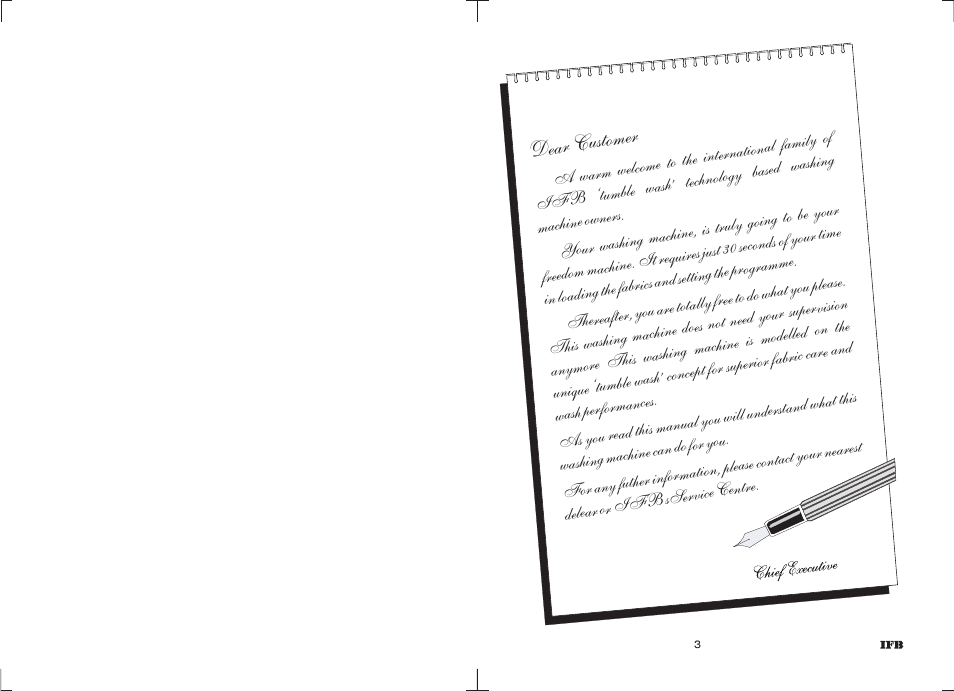 Dear Customer
A warm welcome to the international family of
IFB 'tumble wash' technology based washing
machine owners.
Your washing machine, is truly going to be your
freedom machine. It requires just 30 seconds of your time
in loading the fabrics and setting the programme.
Thereafter, you are totally free to do what you please.
This washing machine does not need your supervision
anymore This washing machine is modelled on the
unique 'tumble wash' concept for superior fabric care and
wash performances.
As you read this manual you will understand what this
washing machine can do for you.
For any futher information, please contact your nearest
delear or IFBsService Centre.
Chief Executive
3
IFB